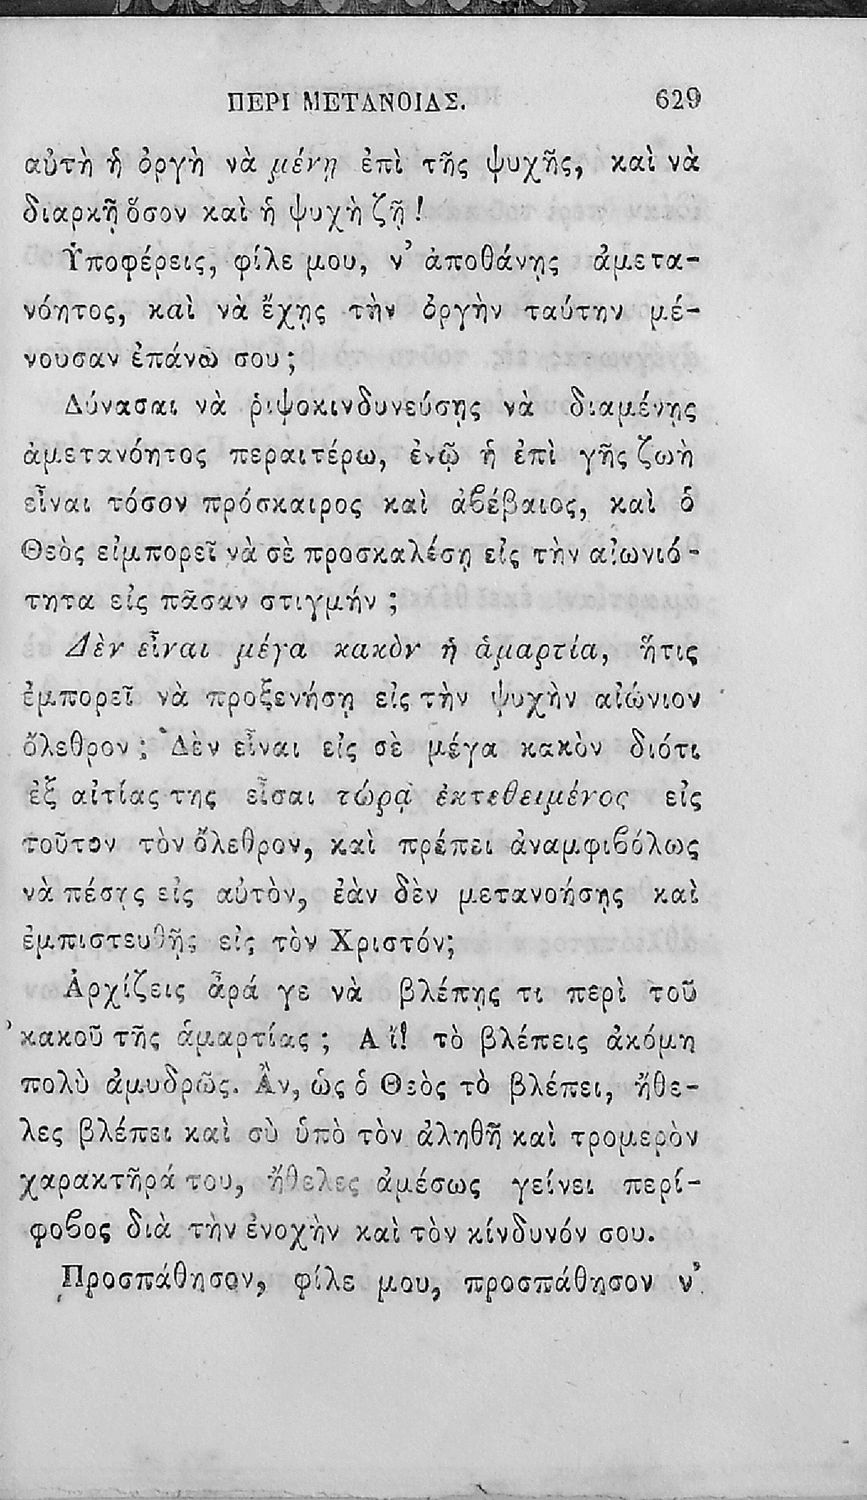 ΠΕΡΙ ΜΕΤΑΝΟΙΑΣ. 629
αὐτὴ ἡ ὀργὴ νὰ μένῃ ἐπὶ τῆς ψυχῆς, καὶ νὰ
διαρκῇ ὅσον καὶ ἡ ψυχὴ ζῇ!
Ὑποφέρεις, φίλε μου, ν’ ἀποθάνῃς ἀμετα-
νόητος, καὶ νὰ ἔχῃς τὴν ὀργὴν ταύτην μέ-
νουσαν ἐπάνω σου;
Δύνασαι νὰ ῥιψοκινδυνεύσῃς νὰ διαμένῃς
ἀμετανόητος περαιτέρω, ἐνῷ ἡ ἐπὶ γῆς ζωὴ
εἶναι τόσον πρόσκαιρος καὶ ἀϐέϐαιος, καὶ ὁ
Θεὸς εἰμπορεῖ νὰ σὲ προσκαλέσῃ εἰς τὴν αἰωνιό-
τητα εἰς πᾶσαν στιγμήν;
Δὲν εἶναι μέγα κακὸν ἡ ἁμαρτία, ἥτις
ἐμπορεῖ νὰ προξενήσῃ εἰς τὴν ψυχὴν αἰώνιον
ὄλεθρον; Δὲν εἶναι εἰς σὲ μέγα κακὸν διότι
ἐξ αἰτίας της εἶσαι τώρα ἐκτεθειμένος εἰς
τοῦτον τὸν ὄλεθρον, καὶ πρέπει ἀναμφιϐόλως
νὰ πέσῃς εἰς αὐτὸν, ἐὰν δὲν μετανοήσῃς καὶ
ἐμπιστευθῇς εἰς τὸν Χριστόν;
Ἀρχίζεις ἆρά γε νὰ βλέπῃς τι περὶ τοῦ
κακοῦ τῆς ἁμαρτίας; Αἴ! τὸ βλέπεις ἀκόμη
πολὺ ἀμυδρῶς. Ἄν, ὡς ὁ Θεὸς τὸ βλέπει, ἤθε-
λες βλέπει καὶ σὺ ὑπὸ τὸν ἀληθῆ καὶ τρομερὸν
χαρακτῆρά του, ἤθελες ἀμέσως γείνει περί-
φοϐος διὰ τὴν ἐνοχὴν καὶ τὸν κίνδυνόν σου.
Προσπάθησον, φίλε μου, προσπάθησον ν’